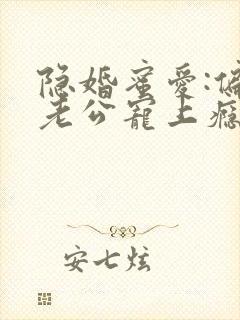 隐婚蜜爱:偏
老公宠上瘾
安七炫